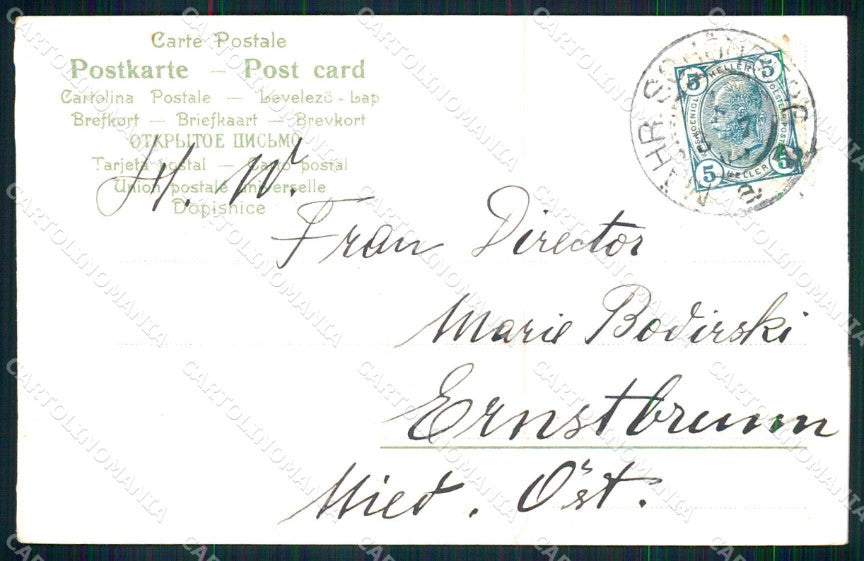 Carte Postale
Postkarte — Post card
Cartolina Postale — Levelező-Lap
Brefkort — Briefkaart — Brevkort
ОТКРЫТОЕ ПИСЬМО
Tarjeta postal — Carto postal
Union postale universelle
Dopisnice
H. W.
Frau Director
Marie Bodirski
Ernstbrunn
Nied. Öst.
5 HELLER 5
5 HELLER 5
MÄHR. SCHÖNBERG
CARTOLINOMANIA